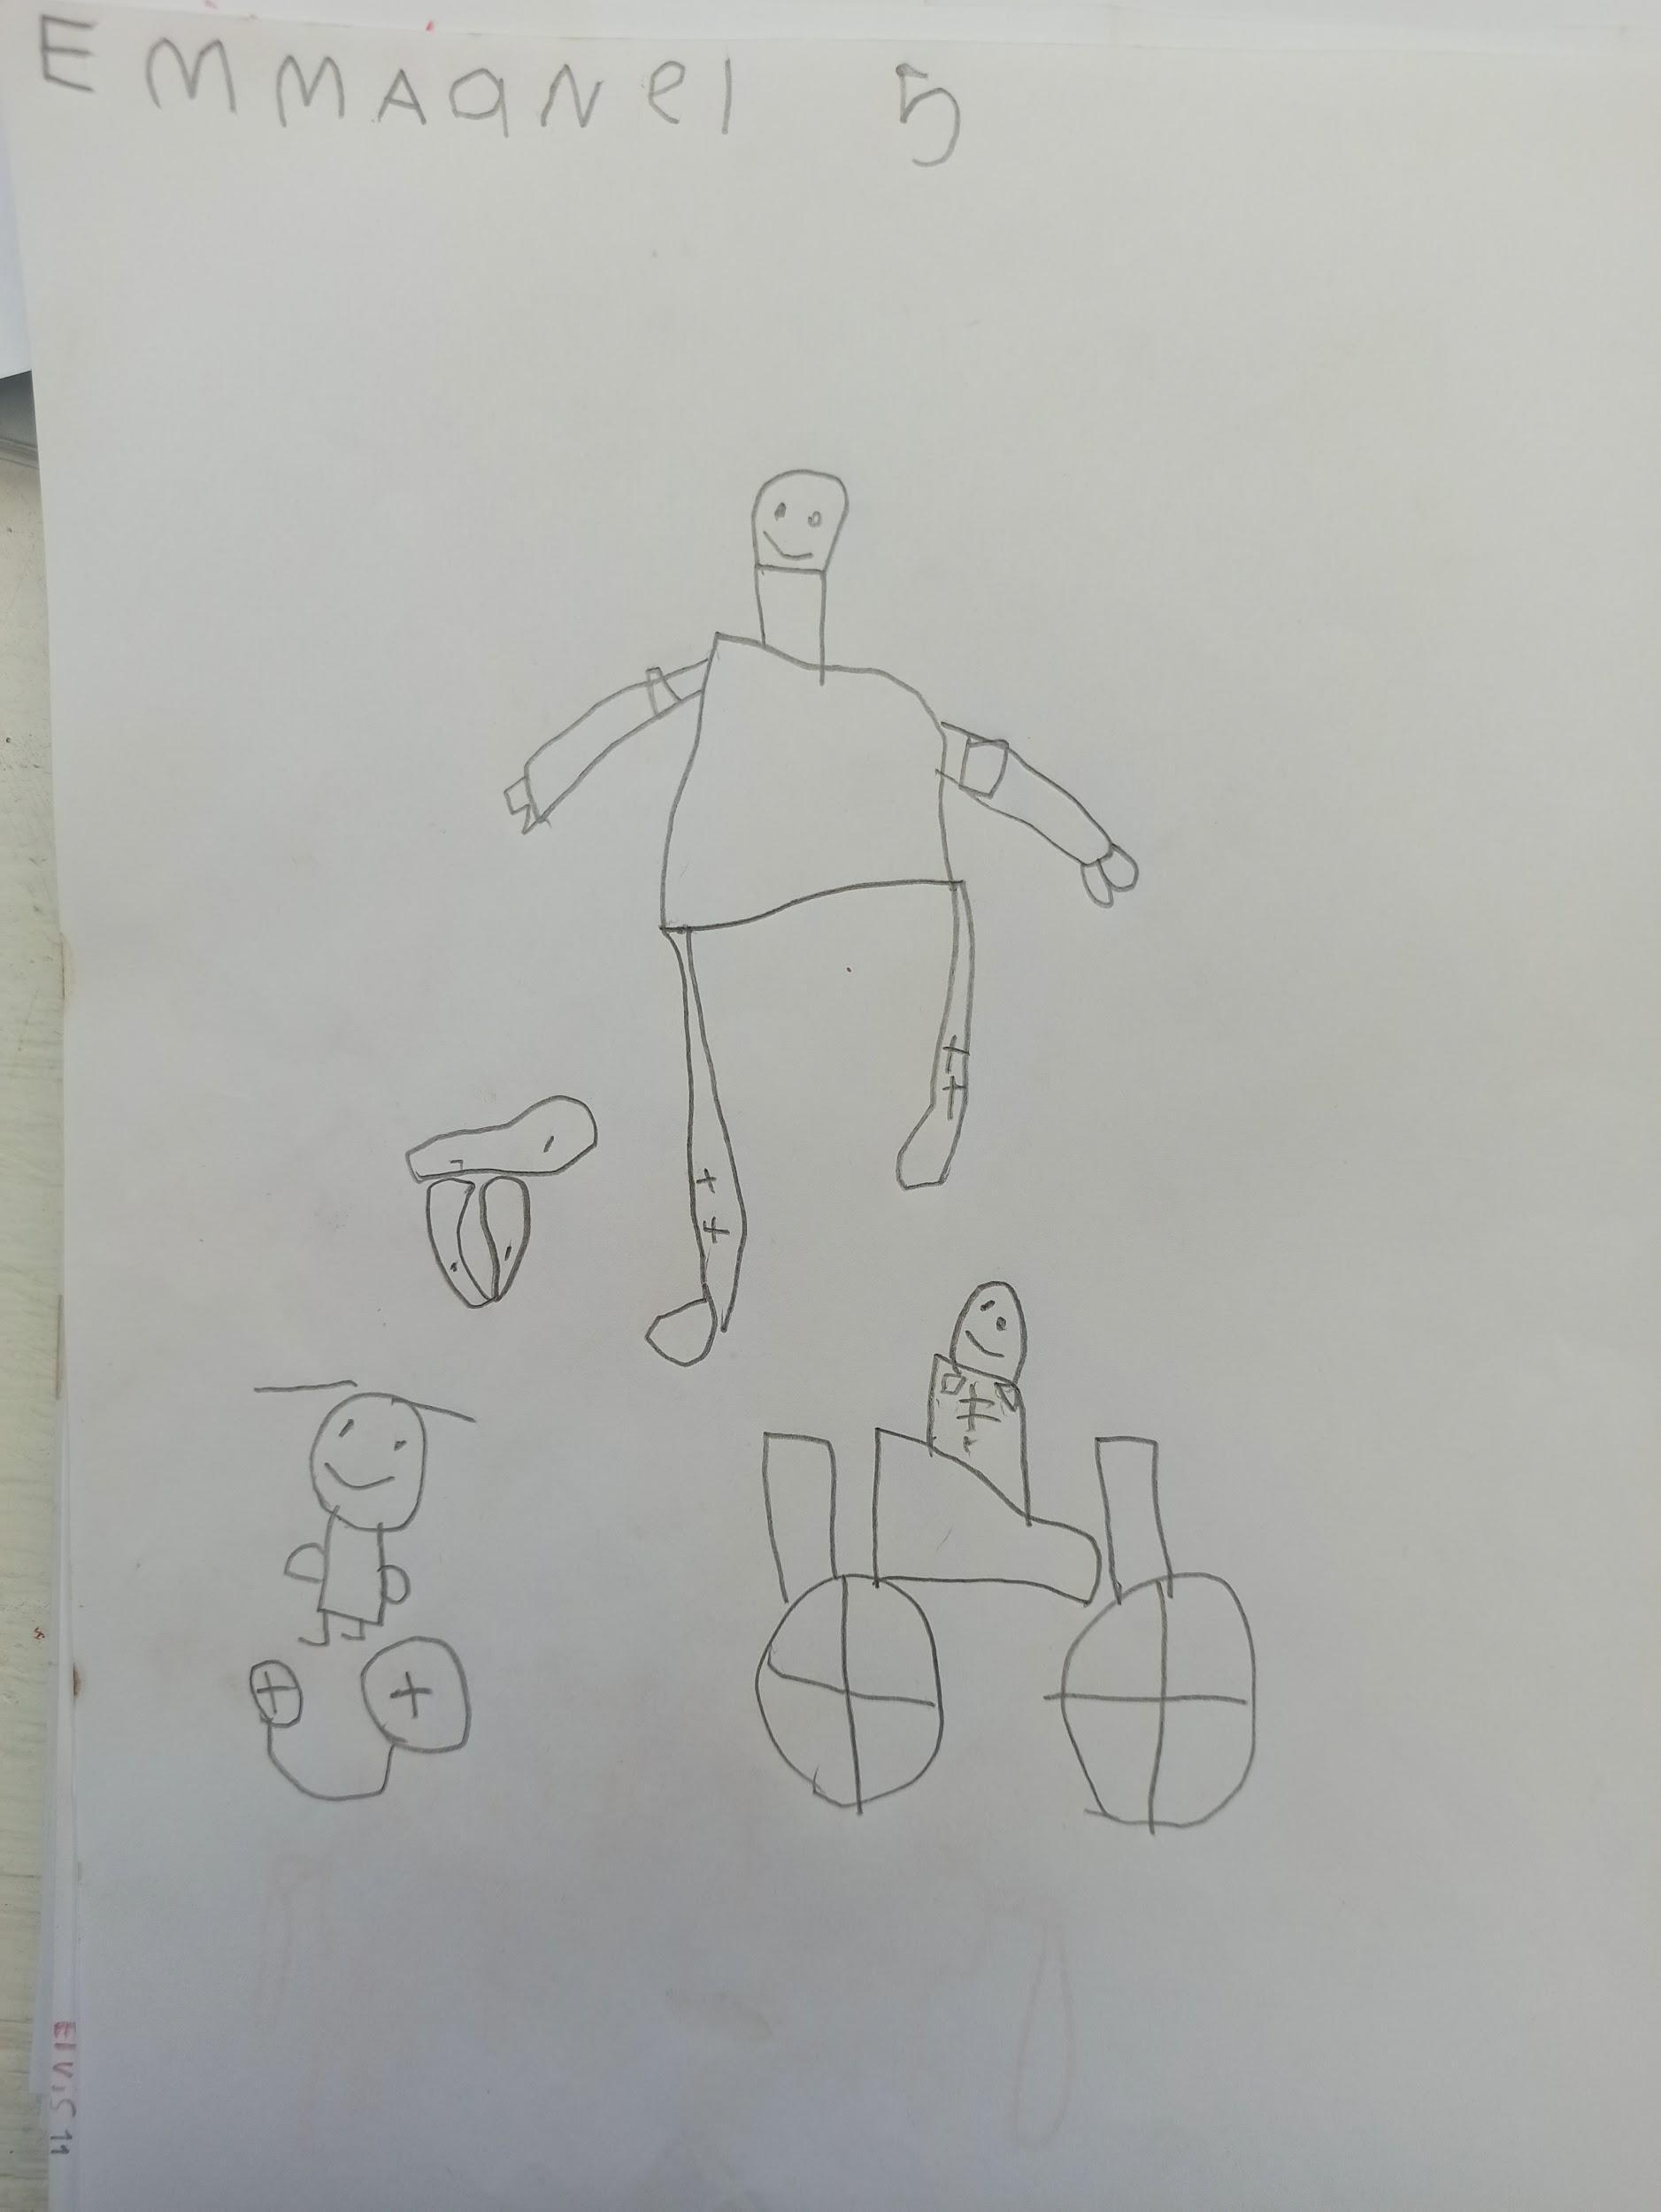 EMMAqNel 5
ElViS 11